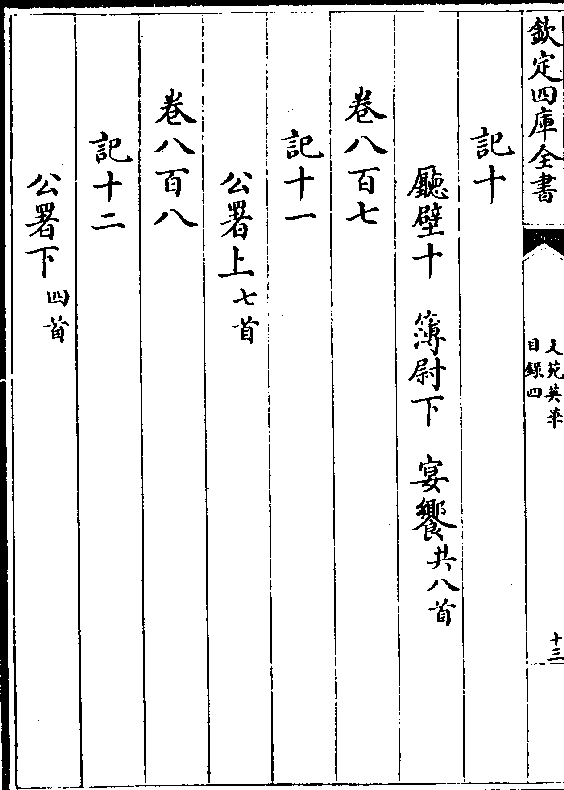 欽定四庫全書
文苑英華
目錄四
十三
記十
廳壁十 簿尉下 宴饗共八首
卷八百七
記十一
公署上七首
卷八百八
記十二
公署下四首